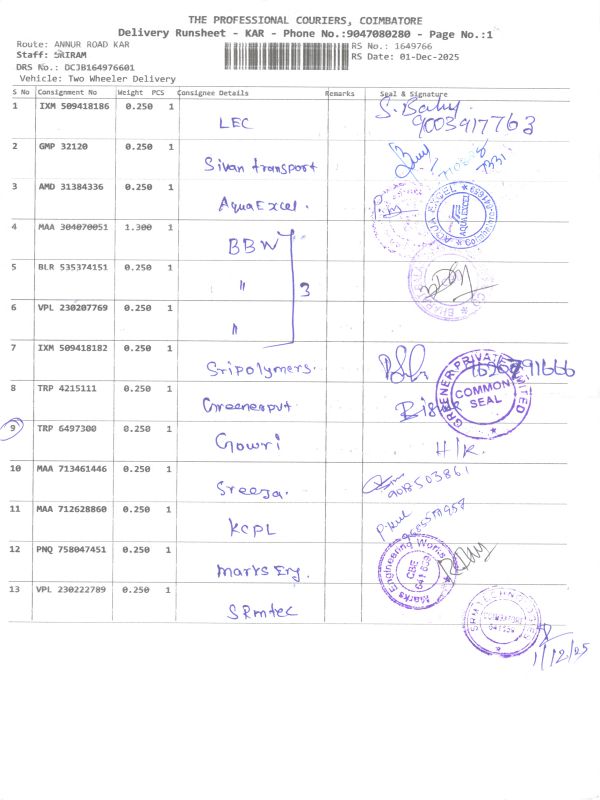 THE PROFESSIONAL COURIERS, COIMBATORE
Delivery Runsheet - KAR - Phone No.:9047080280 - Page No.:1
Route: ANNUR ROAD KAR
RS No.: 1649766
Staff: SRIRAM
RS Date: 01-Dec-2025
DRS No.: DCJB164976601
Vehicle: Two Wheeler Delivery
S No Consignment No Weight PCS Consignee Details Remarks Seal & Signature
1 IXM 509418186 0.250 1 LEC S. Babu. 9003917763
2 GMP 32120 0.250 1 Sivan transport
3 AMD 31384336 0.250 1 AquaExcel. AQUA EXCEL
4 MAA 304070051 1.300 1 BBW
5 BLR 535374151 0.250 1 " 3
6 VPL 230207769 0.250 1 "
7 IXM 509418182 0.250 1 Sripolymers.
8 TRP 4215111 0.250 1 Greenerpvt GREENER PRIVATE LIMITED COMMON SEAL
9 TRP 6497300 0.250 1 Gowri H/K.
10 MAA 713461446 0.250 1 Sreeja. 9018503861
11 MAA 712628860 0.250 1 KCPL
12 PNQ 758047451 0.250 1 Marks Eng. Marks Engineering Works CBE 641 659
13 VPL 230222789 0.250 1 SRmtec COIMBATORE 641 659
1/12/25